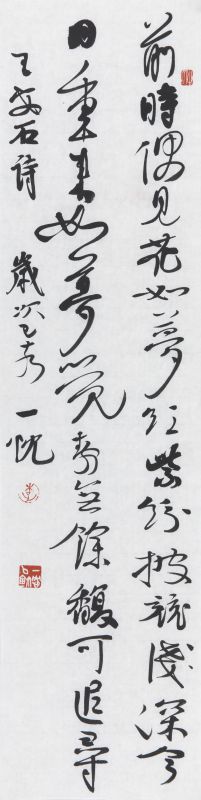 前時偶見花如夢紅紫紛披競淺深今
日重來如夢覺靜無餘馥可追尋
王安石詩 歲次 一忱